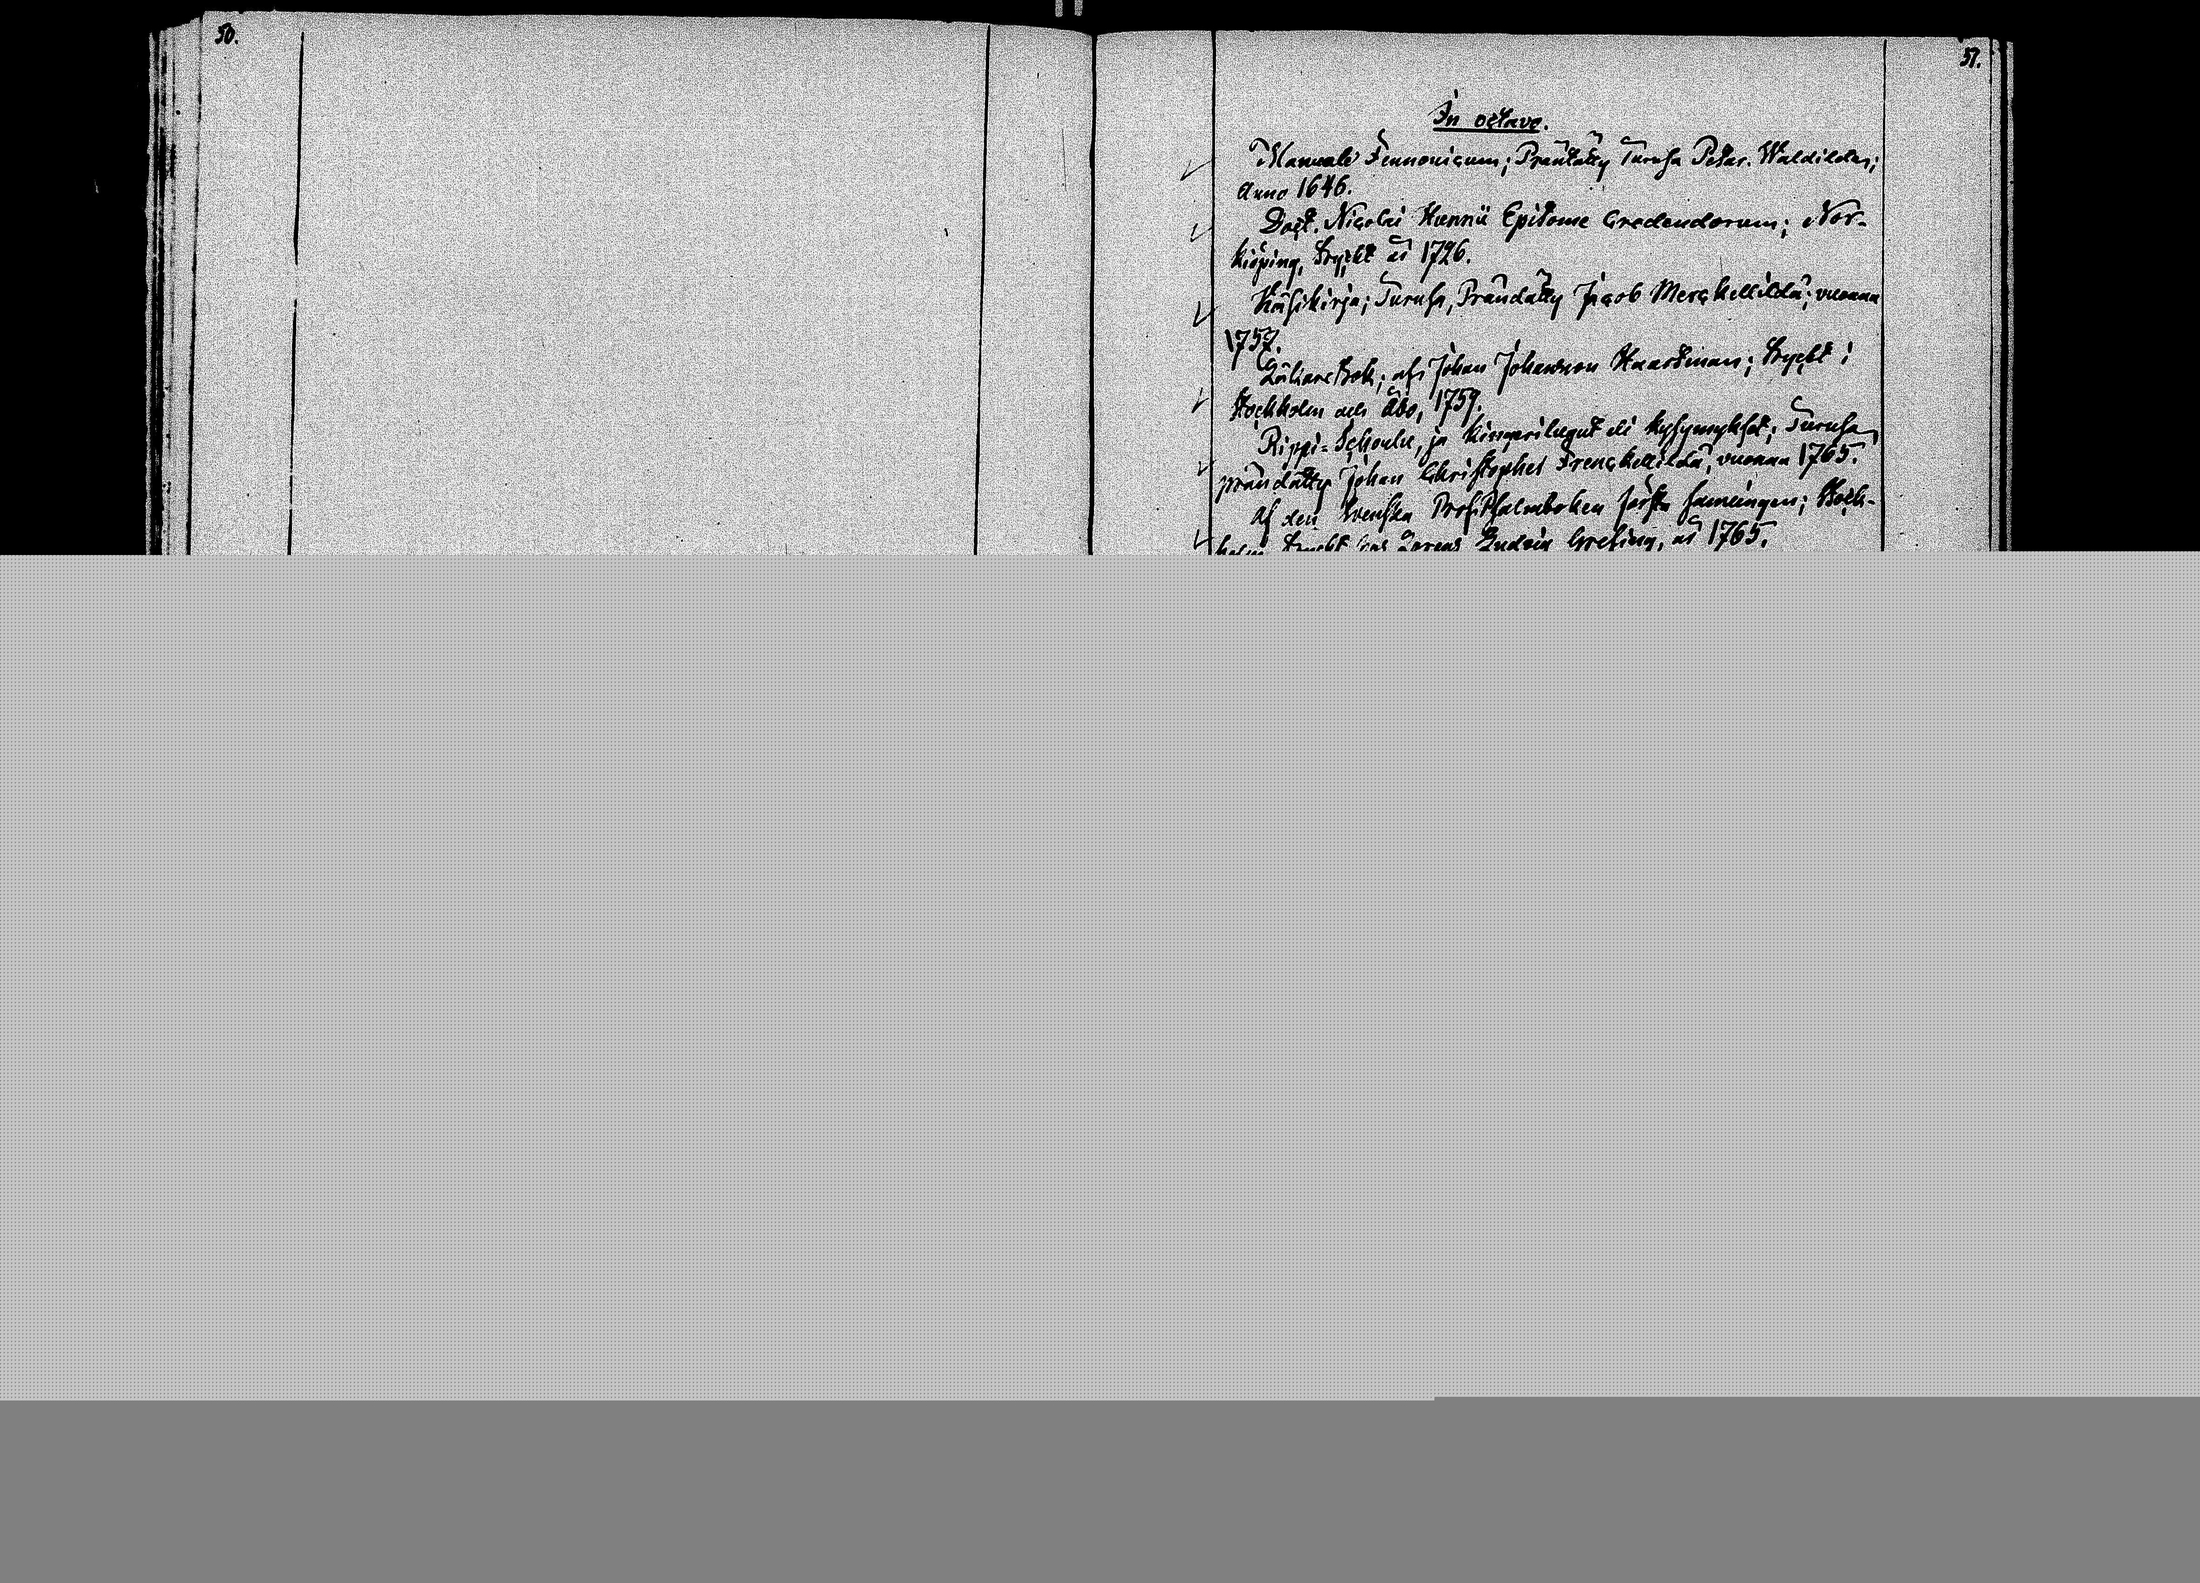 50.
51.
In octavo.
Manuale Fennonicum; Präntätty Turusa Petar. Waldildas;
Anno 1646.
Doct. Nicolai Hunnii Epitome Credendorum; Nor-
kiöping, Tryckt år 1726.
Käsikirja; Turusa, Prändätty Jacob Merckellildä; vuonna
1757.
Läkare Bok; af Johan Johansson Haartman; Tryckt i
Stockholm och Åbo, 1759.
Rippi-Schoulu, ja Kinguerilugut eli kysymykset; Turusa
prändätty Johan Christopher Frenckellildä, vuonna 1765.
Af den Svenska Prof-Psalmboken första samlingen; Stock-
holm Tryckt hos Lorens Ludvig Grefing, år 1765.